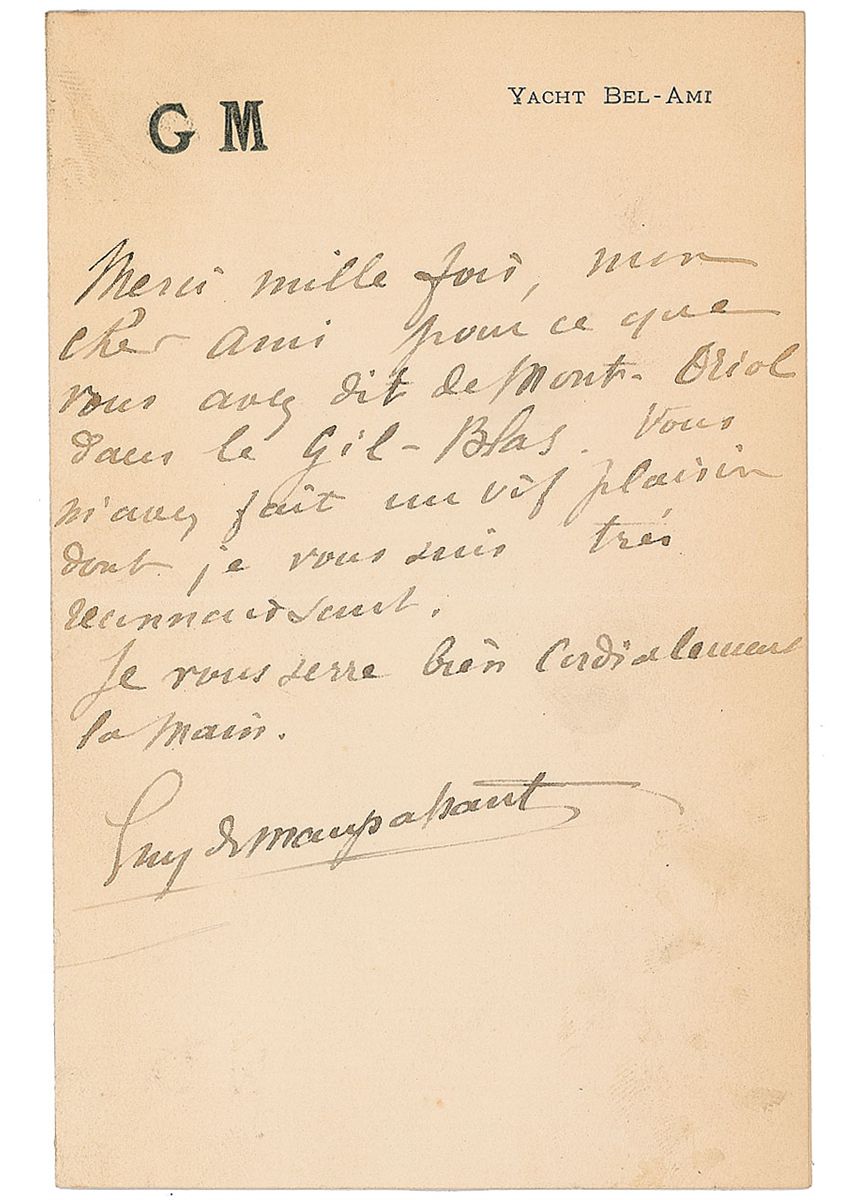 G M
YACHT BEL-AMI
Merci mille fois, mon
cher ami pour ce que
vous avez dit de Mont-Oriol
dans le Gil-Blas. Vous
m'avez fait un vif plaisir
dont je vous suis très
reconnaissant.
Je vous serre bien cordialement
la main.
Guy de Maupassant